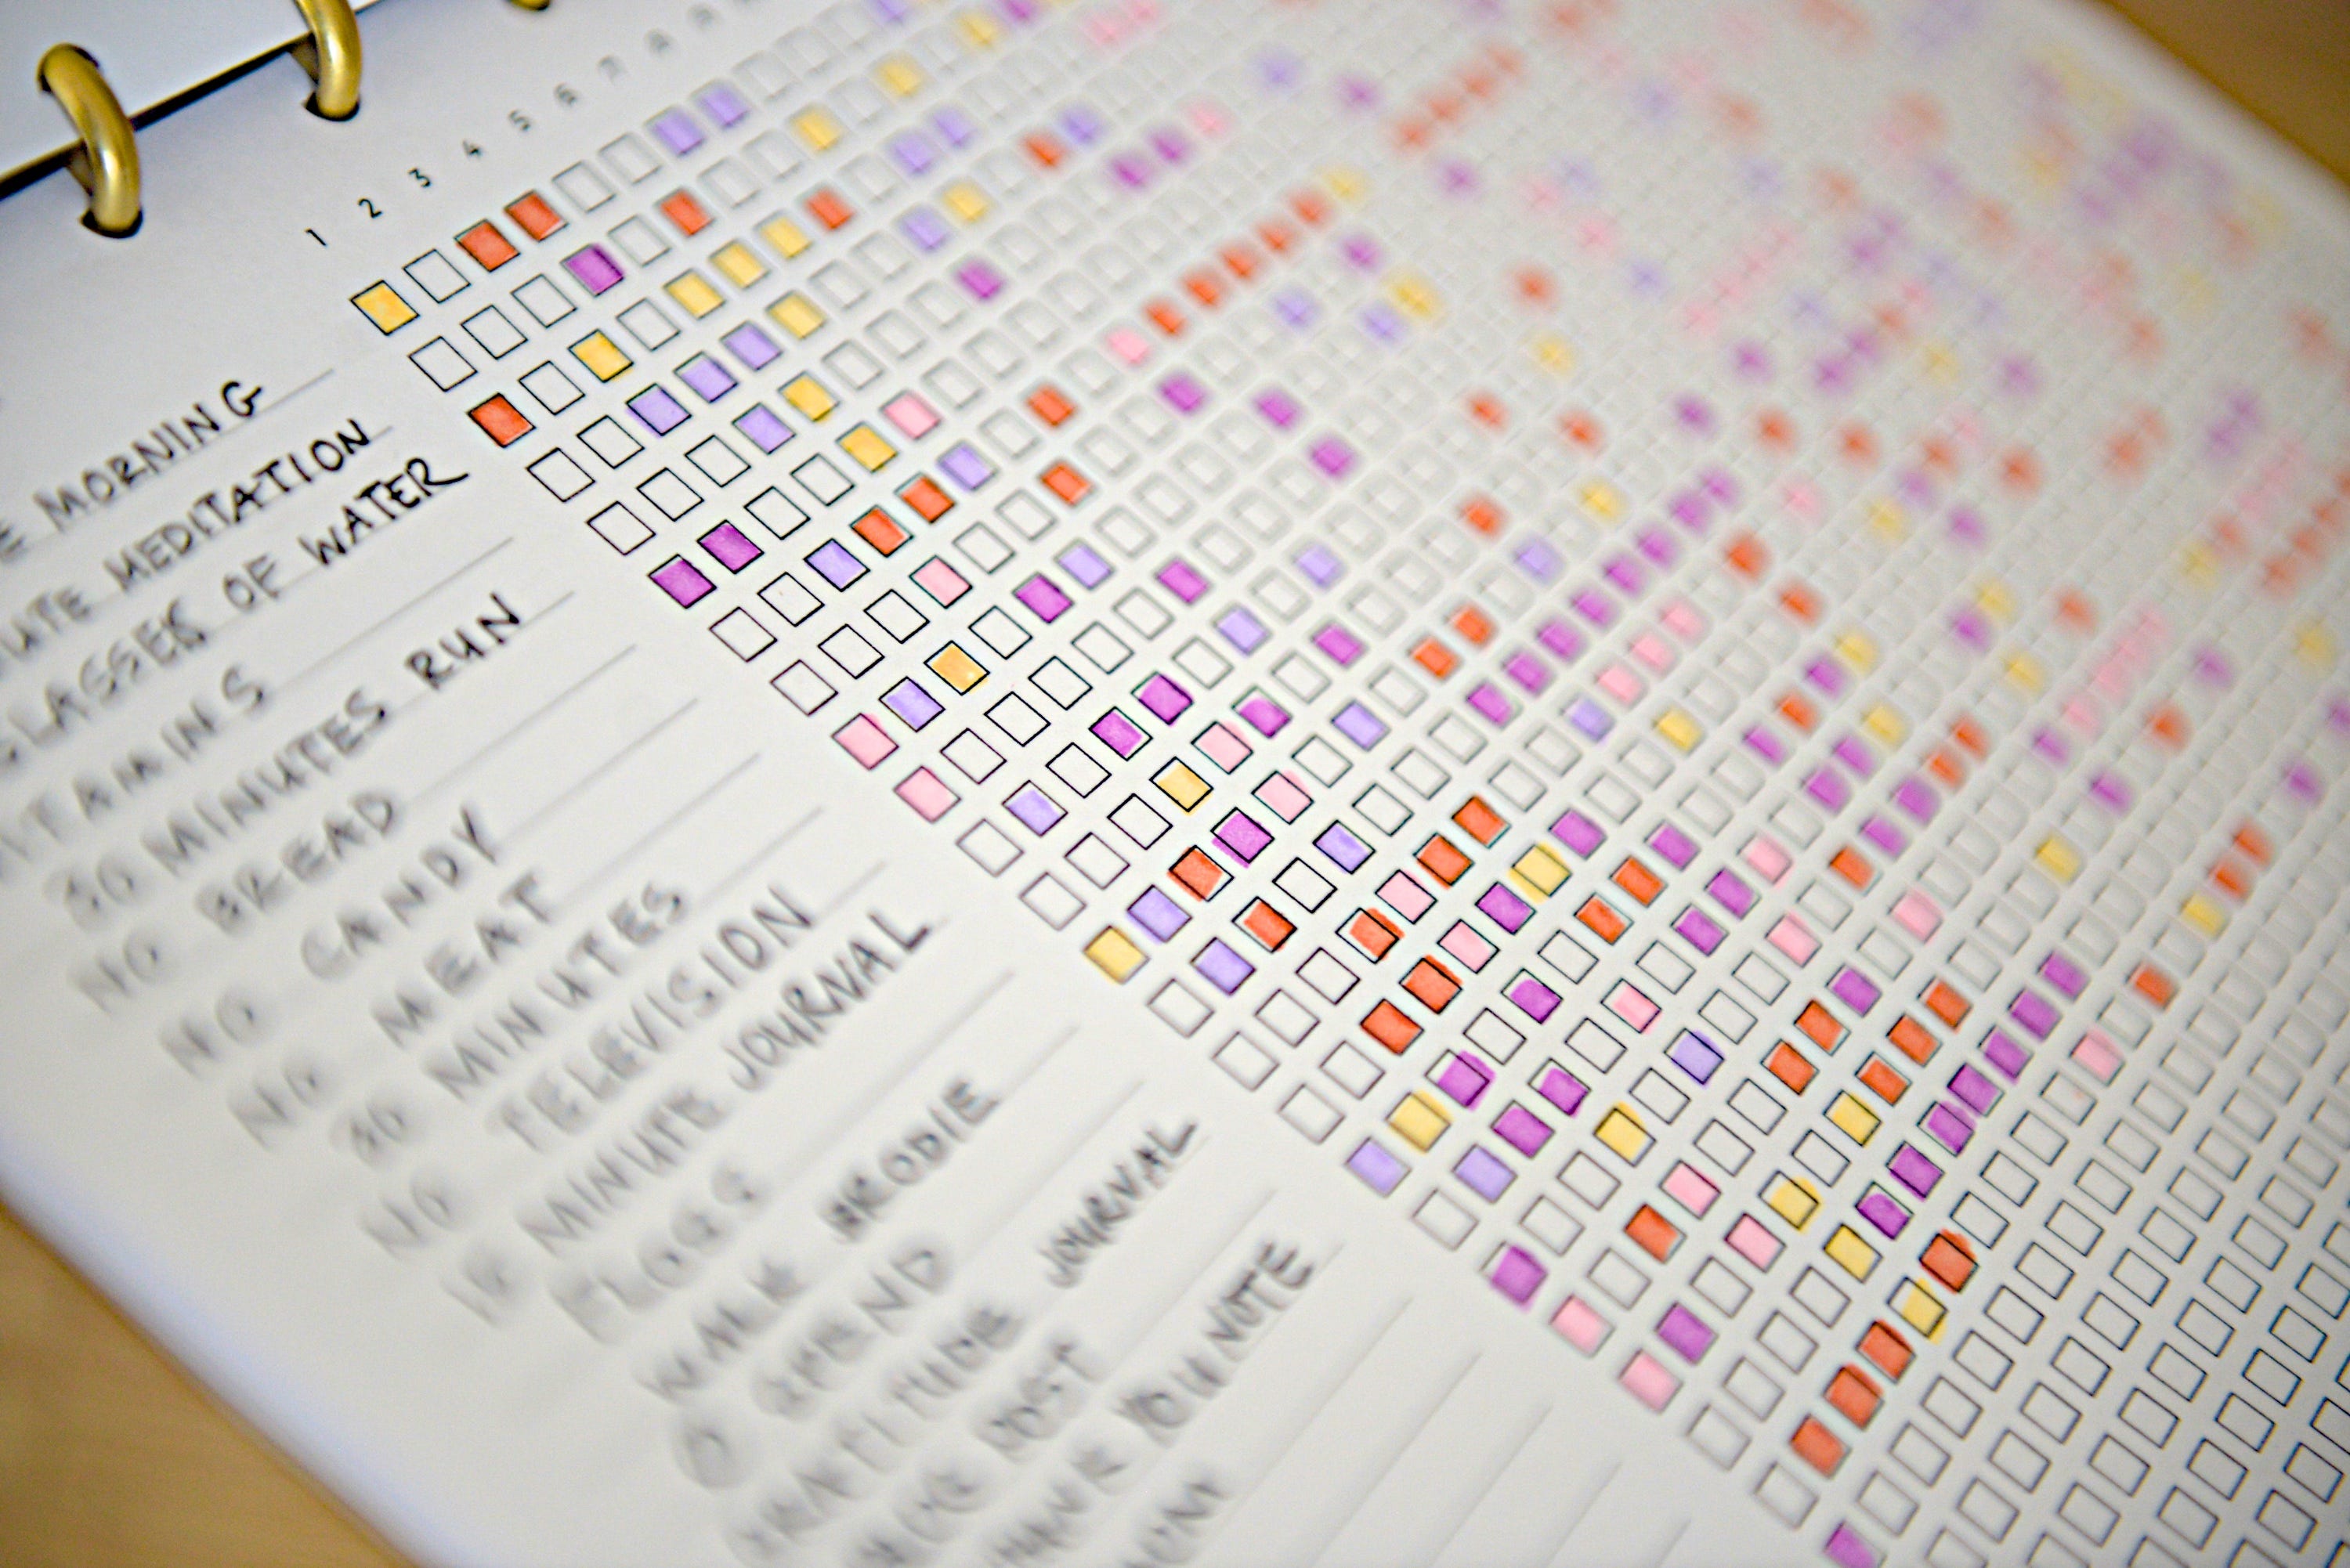 1 2 3 4 5 6 7 8
MORNING
MEDITATION
GLASSES OF WATER
30 MINUTES RUN
NO BREAD
NO CANDY
NO MEAT
30 MINUTES
NO TELEVISION
MINUTE JOURNAL
FLOSS
WALK BRODIE
0 SPEND
JOURNAL
POST
YOU NOTE